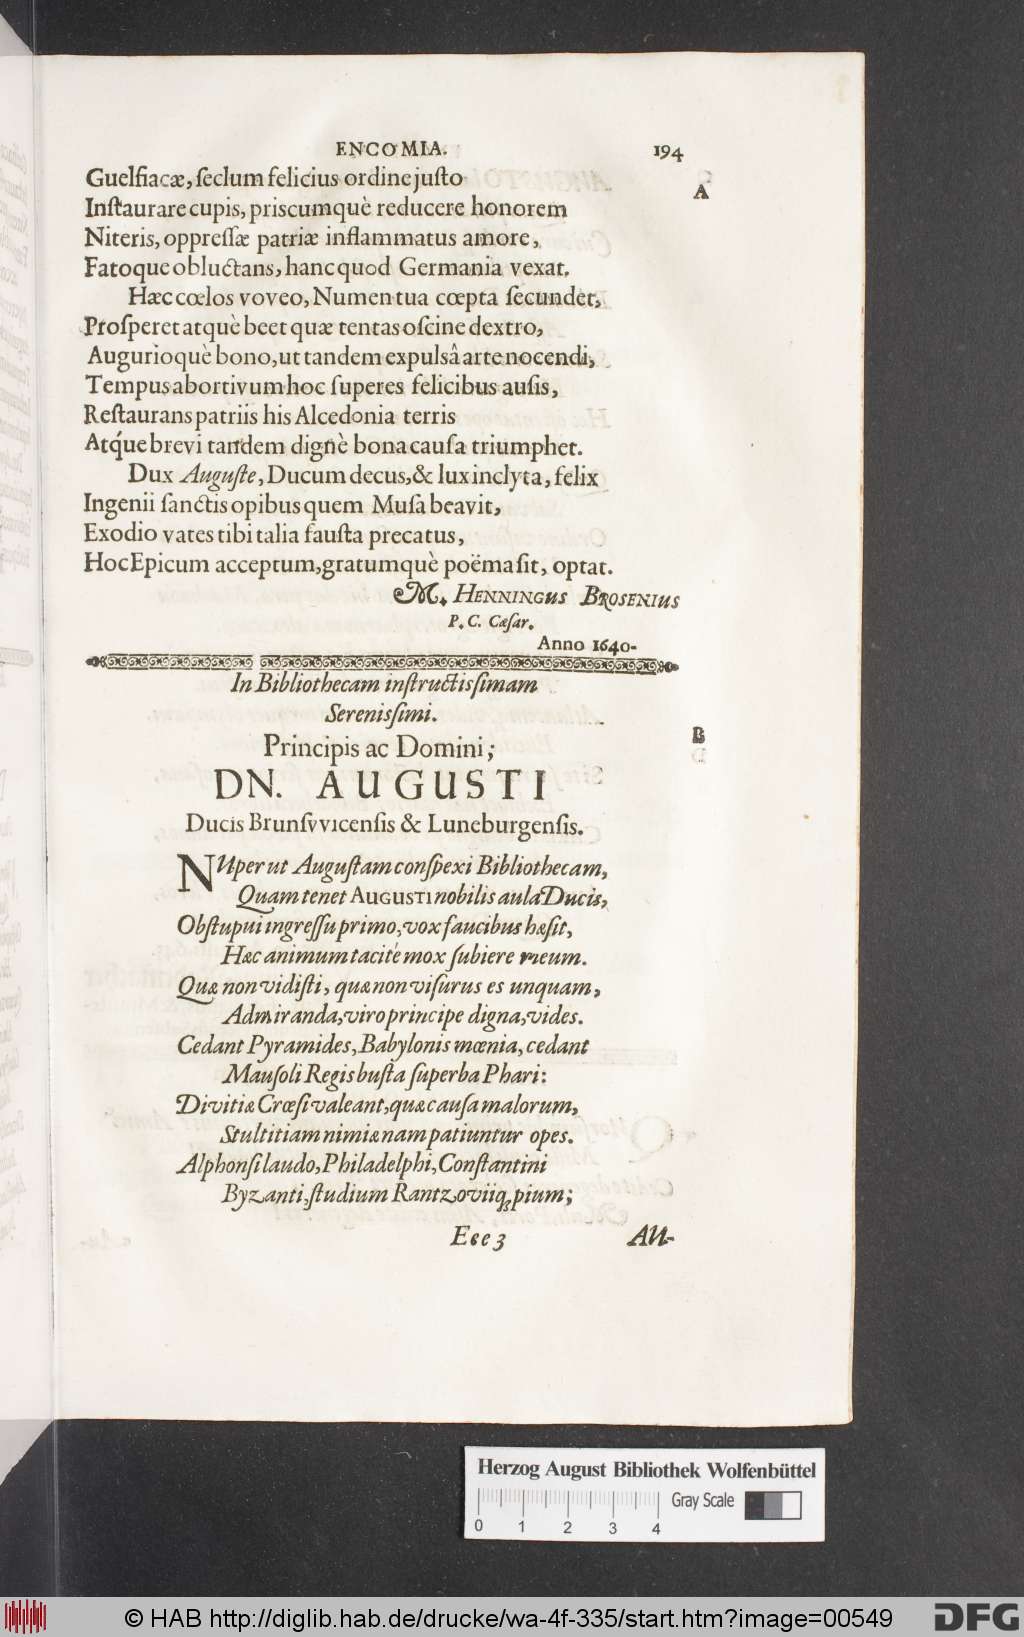 ENCOMIA. 194
Guelfiacæ, ſeclum felicius ordine juſto
A
Inſtaurare cupis, priscumquè reducere honorem
Niteris, oppreſſæ patriæ inflammatus amore,
Fatoque obluctans, hanc quod Germania vexat.
Hæc cœlos voveo, Numen tua cœpta ſecundet,
Proſperet atquè beet quæ tentas oſcine dextro,
Augurioquè bono, ut tandem expulsâ arte nocendi,
Tempus abortivum hoc ſuperes felicibus auſis,
Reſtaurans patriis his Alcedonia terris
Atq́ue brevi tandem dignè bona cauſa triumphet.
Dux Auguſte, Ducum decus, & lux inclyta, felix
Ingenii ſanctis opibus quem Muſa beavit,
Exodio vates tibi talia fauſta precatus,
Hoc Epicum acceptum, gratumquè poëma ſit, optat.
M. HENNINGUS BROSENIUS
P. C. Cæſar.
Anno 1640.
In Bibliothecam inſtructisſimam
Serenisſimi.
B
Principis ac Domini;
DN. AUGUSTI
Ducis Brunſvvicenſis & Luneburgenſis.
NUper ut Auguſtam conſpexi Bibliothecam,
Quam tenet AUGUSTI nobilis aula Ducis,
Obſtupui ingreſſu primo, vox faucibus hæſit,
Hæc animum tacitè mox ſubiere meum.
Quæ non vidiſti, quæ non viſurus es unquam,
Admiranda, viro principe digna, vides.
Cedant Pyramides, Babylonis mœnia, cedant
Mauſoli Regis buſta ſuperba Phari:
Divitiæ Crœſi valeant, quæ cauſa malorum,
Stultitiam nimiæ nam patiuntur opes.
Alphonſi laudo, Philadelphi, Conſtantini
Byzanti, ſtudium Rantzoviiq́; pium;
Eee 3 Au-
Herzog August Bibliothek Wolfenbüttel
Gray Scale
0 1 2 3 4
© HAB http://diglib.hab.de/drucke/wa-4f-335/start.htm?image=00549
DFG